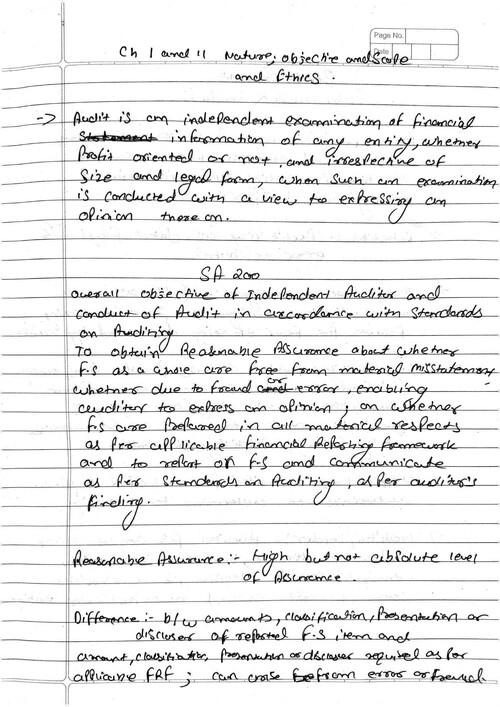 Page No.
Date
Ch 1 and 11 Nature, objective and Scope
and Ethics.
→ Audit is an independent examination of financial
Statement information of any entity, whether
Profit oriented or not, and irrespective of
Size and legal form, when such an examination
is conducted with a view to expressing an
opinion there on.
SA 200
overall objective of Independent Auditor and
conduct of Audit in accordance with Standards
on Auditing
To obtain Reasonable Assurance about whether
F.S as a whole are free from material misstatement
whether due to fraud or error, enabling
auditor to express an opinion; on whether
F.S are Prepared in all material respects
as per applicable Financial Reporting framework
and to report on F.S and communicate
as per Standards on Auditing, as per auditor's
finding.
Reasonable Assurance :- High but not absolute level
of Assurance.
Difference :- b/w amounts, classification, Presentation or
discloser of reported F.S item and
amount, classification, presentation or discloser required as per
applicable FRF ; can from error or fraud